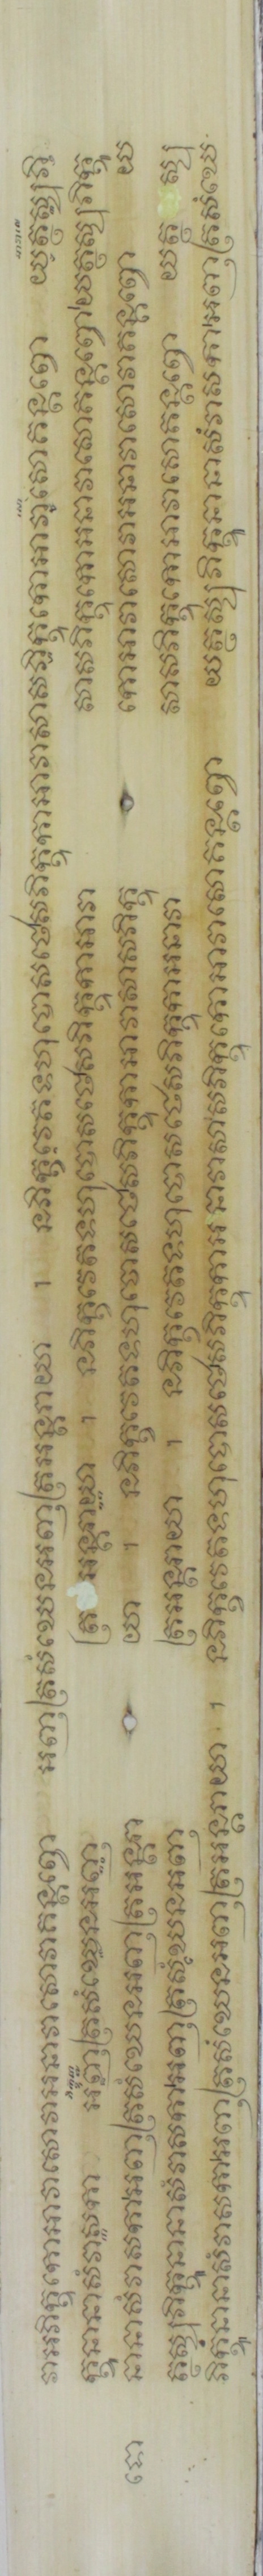 វាអភិក្ខុកោអាវាសោវាអនាវាសោវាគន្តព្វោ អញ្ញត្រសំឃេនអញ្ញត្រអន្តរាយា ។ នភិក្ខវេតទហុបោសថេសភិក្ខុកាអាវាសាសភិក្ខុកោអាវាសោគន្តព្វោ យត្ថស្សុភិ
ក្ខូនានាសំវាសកា អញ្ញត្រសំឃេនអញ្ញ ត្រអន្តរាយា ។ នភិក្ខវេតទហុបោសថេសភិក្ខុកាអាវា សាសភិក្ខុកោអនាវាសោគន្តព្វោ យត្ថស្សុភិក្ខូ
នានាសំវាសកាអញ្ញត្រសំឃេនអញ្ញត្រអន្តរា យា ។ នភិក្ខវេតទហុបោសថេសភិក្ខុកាអាវាសាសភិក្ខុ កោអាវាសោវាអនាវាសោវាគន្តព្វោ យ
ត្ថស្សុភិក្ខូនានាសំវាសកាអញ្ញត្រសំឃេនអញ្ញ ត្រអន្តរាយា ។ នភិក្ខវេតទហុបោសថេសភិក្ខុកាអនាវា សាសភិក្ខុកោអាវាសោគន្តព្វោ យត្ថស្សុ
ភិក្ខូនានាសំវាសកាអញ្ញត្រសំឃេនអញ្ញត្រអន្តរាយា ។ នភិក្ខវេតទហុបោសថេសភិក្ខុកាអនាវាសាសភិក្ខុកោអាវាសោគន្តព្វោ យត្ថស្សុភិក្ខូនានាសំវាសកាអញ្ញត្រសំឃេ